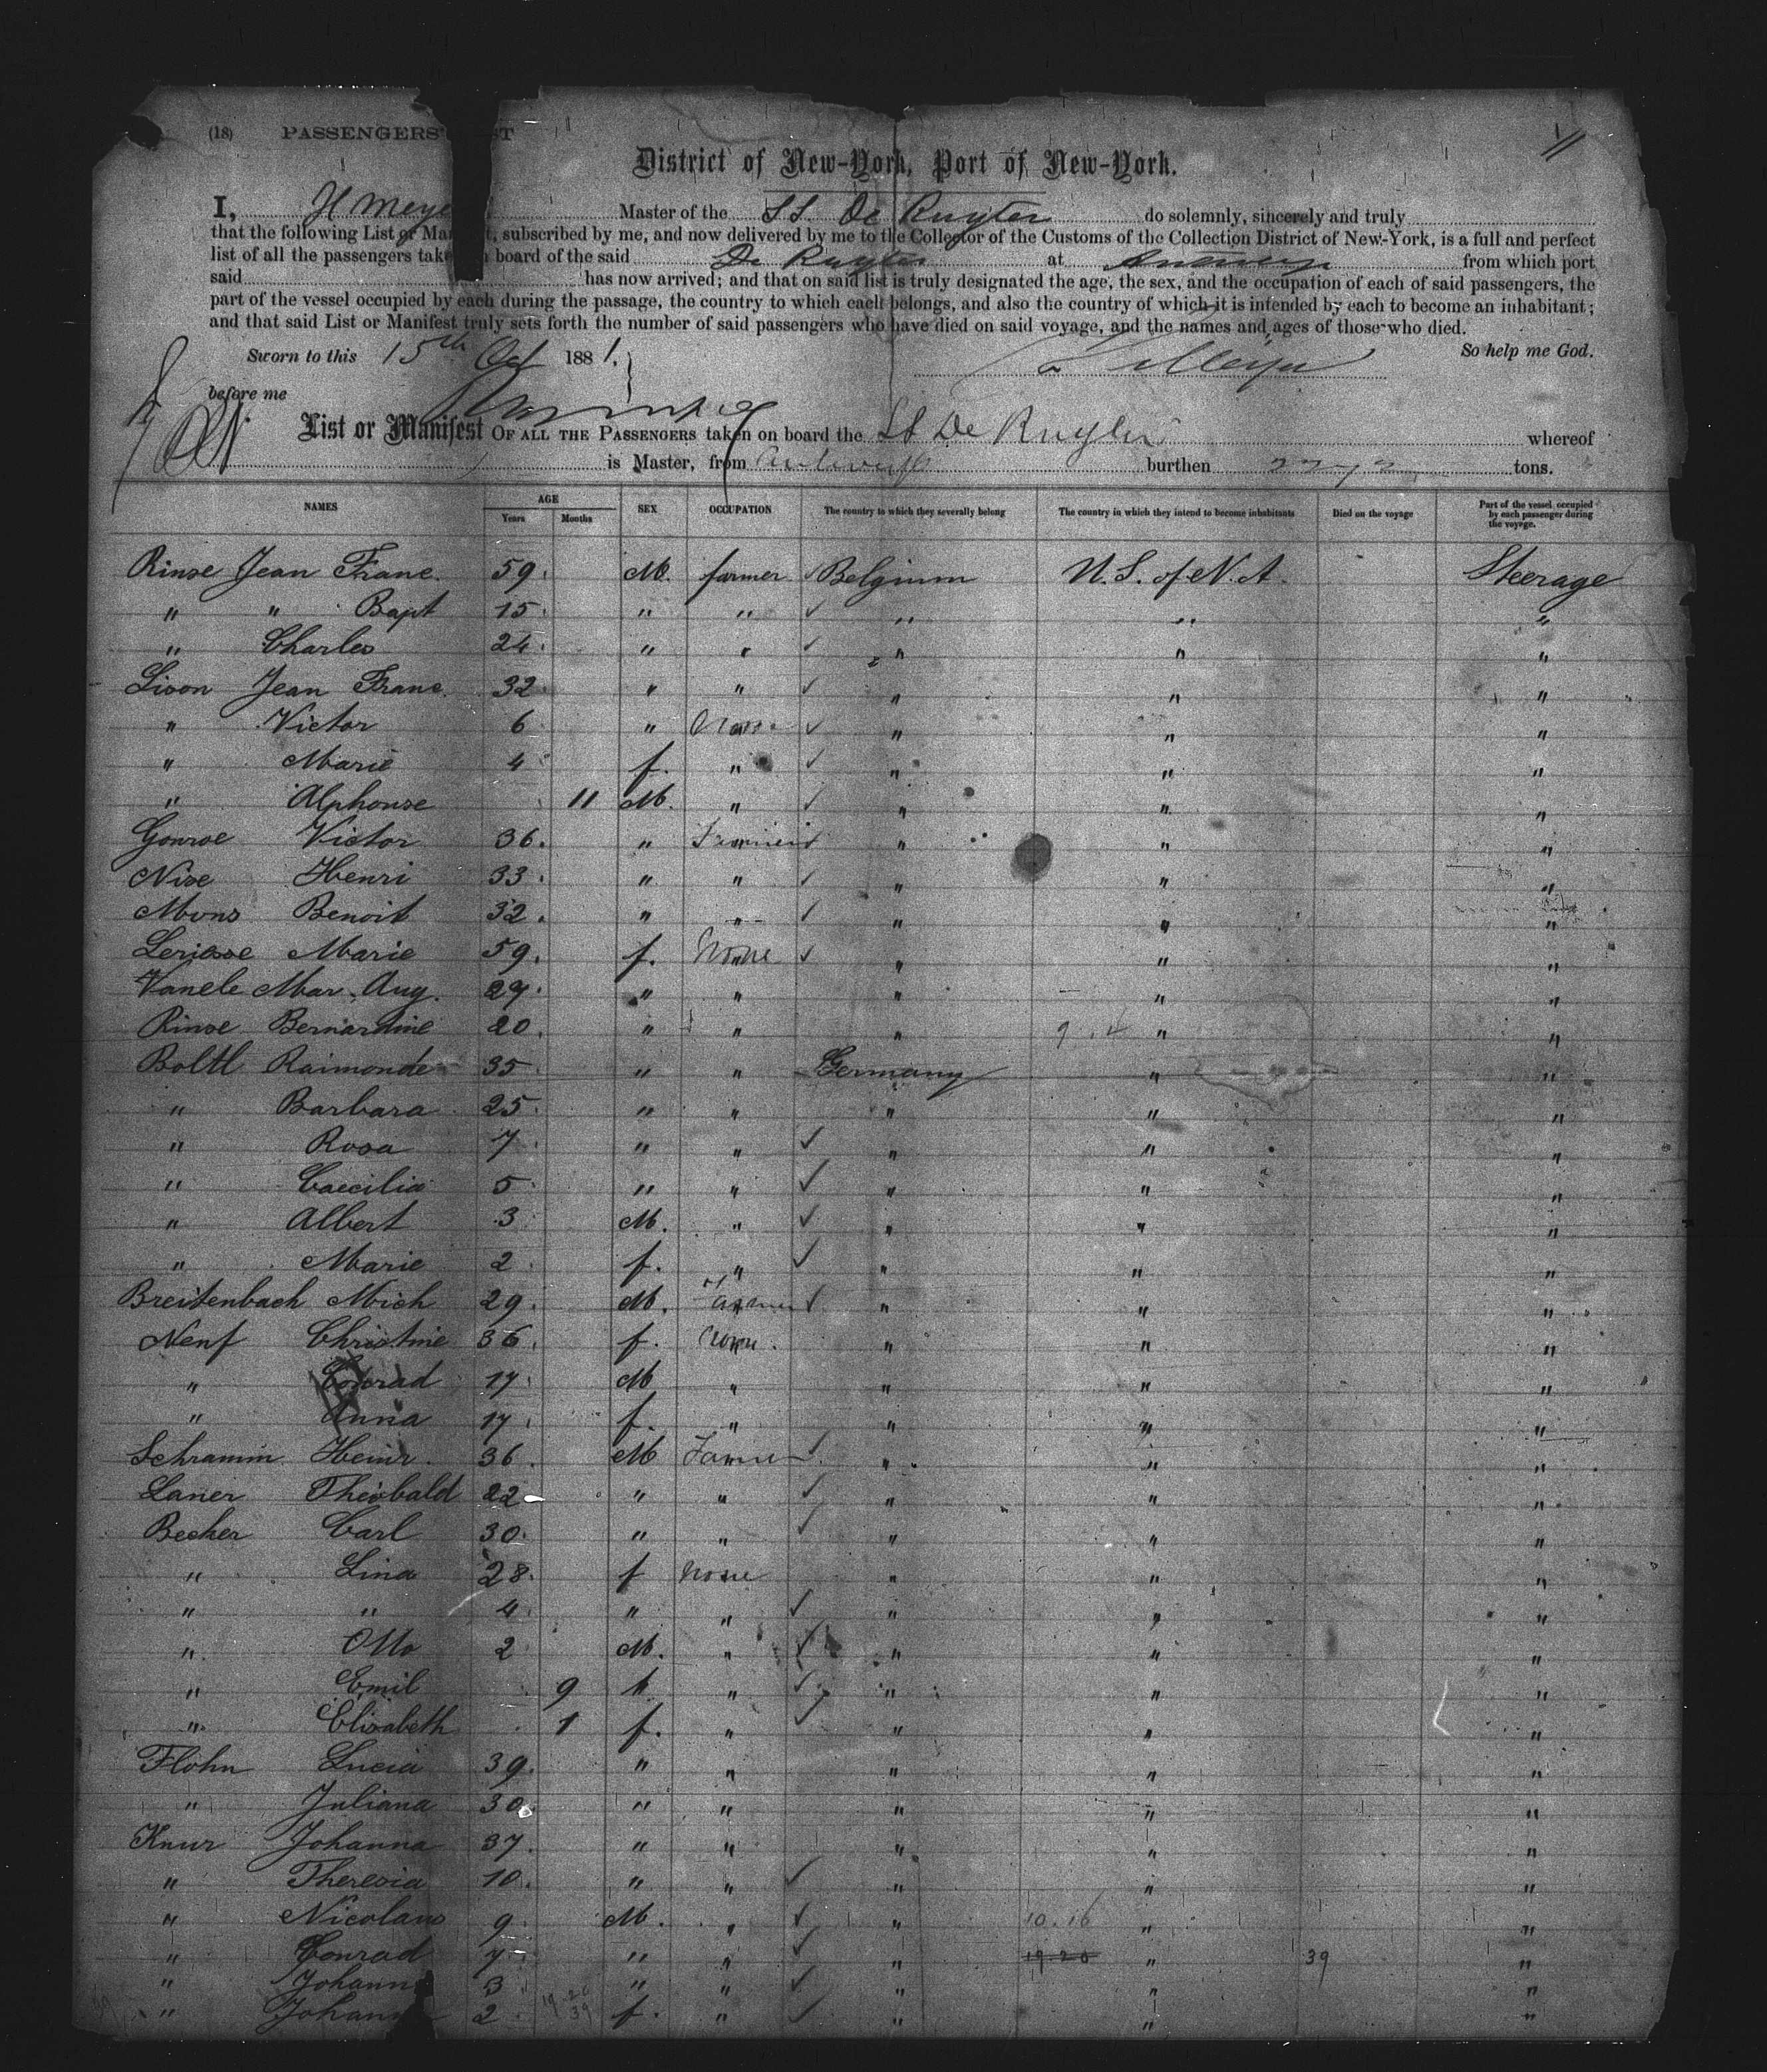 (18) PASSENGERS' ST
11
District of New-York, Port of New-York.
I, H Meye Master of the S.S. De Ruyter do solemnly, sincerely and truly
that the following List or Ma t, subscribed by me, and now delivered by me to the Collector of the Customs of the Collection District of New-York, is a full and perfect
list of all the passengers take board of the said De Ruyter at Antwerp from which port
said has now arrived; and that on said list is truly designated the age, the sex, and the occupation of each of said passengers, the
part of the vessel occupied by each during the passage, the country to which each belongs, and also the country of which it is intended by each to become an inhabitant;
and that said List or Manifest truly sets forth the number of said passengers who have died on said voyage, and the names and ages of those who died.
Sworn to this 15th Oct 1881. So help me God.
H Meyer
before me
List or Manifest OF ALL THE PASSENGERS taken on board the SS De Ruyter whereof
is Master, from Antwerp burthen tons.
NAMES AGE Years Months SEX OCCUPATION The country to which they severally belong The country in which they intend to become inhabitants Died on the voyage Part of the vessel occupied by each passenger during the voyage.
Rinse Jean Franc. 59. M. farmer Belgium U.S. of N.A. Steerage
" " Bapt 15. " " " " "
" Charles 24. " " " " "
Lison Jean Franc. 32. " " " " "
" Victor 6 " None " " "
" Marie 4 f. " " " "
" Alphonse 11 M. " " " "
Gonroe Victor 36. " " " " "
Nise Henri 33. " " " " "
Mons Benoit 32. " " " " "
Leriesse Marie 59. f. None " " "
Vanele Mar. Aug. 29. " " " " "
Rinse Bernardine 20. " " " " "
Boltl Raimonde 35 " " Germany " "
" Barbara 25. " " " " "
" Rosa 7 " " " " "
" Caecilia 5 " " " " "
" Albert 3 M. " " " "
" Marie 2 f. " " " "
Breitenbach Mich 29. M. Farmer " " "
Nenf Christine 36. f. None. " " "
" Conrad 17. M " " " "
" Anna 17. f. " " " "
Schramm Heinr. 36. M Farmer " " "
Laner Theobald 22 " " " " "
Becker Carl 30. " " " " "
" Lina 28. f None " " "
" " 4. " " " " "
" Otto 2 M. " " " "
" Emil 9 " " " "
" Elisabeth 1 f. " " " "
Flohn Lucia 39. " " " " "
" Juliana 30. " " " " "
Knur Johanna 37. " " " " "
" Theresia 10. " " " " "
" Nicolaus 9. M. " " 10.16 " "
" Conrad 7 " " " 19.20 " 39 "
" Johann 3 " " " " "
" Johann 2. 19-20 39 f. " " " "